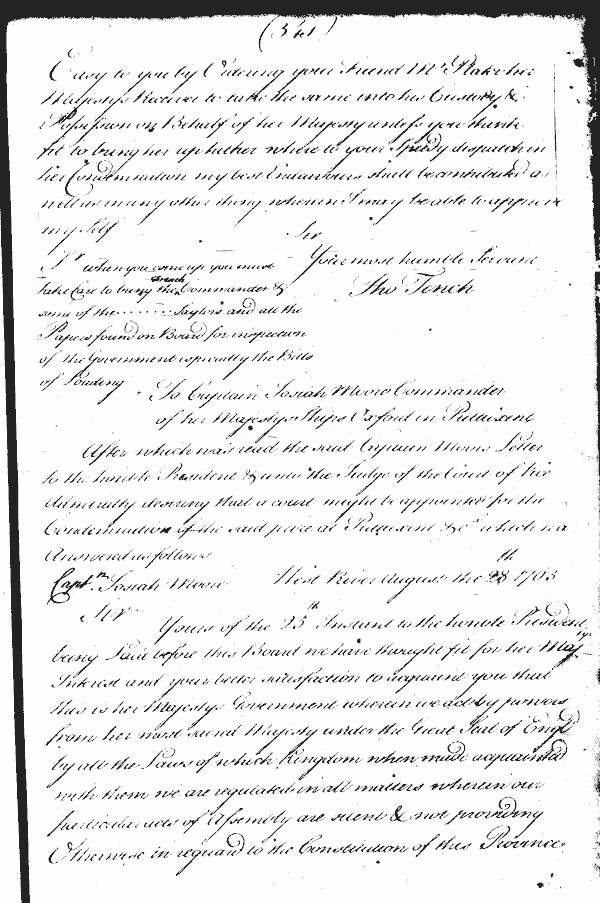 (541)
Easy to you by Ordering your Friend Mr Plater her
Majestys Receiver to take the same into his Custody &
Possession on Behalf of her Majesty unless you think
fit to bring her up hither where to your Speedy dispatch in
her Condemnation my best Endeavours shall be contributed as
well as in any other thing wherein I may be able to approve
my Self
Sir
Your most humble Servant
Tho Tench
Sr when you come up you must
take Care to bring the French Commander &
some of the ........ Saylors and all the
Papers found on Board for inspection
of the Government especially the Bills
of Loading
To Captain Josiah Moore Commander
of her Majestys Ships Oxford in Puttuxent
After which was read the said Captain Moors Letter
to the honble President & unto the Judge of the Court of Vice
Admiralty desireing that a court might be appointed for the
Condemnation of the said prize at Puttuxent &ca which was
Answered as follows
Captn. Josiah Moore West River August the 28th 1703
Sir
Yours of the 25th Instant to the honble President
being Laid before this Board we have thought fit for her Majtys
Interest and your better satisfaction to acquaint you that
this is her Majestys Government wherein we act by powers
from her most sacred Majesty under the Great Seal of Engld
by all the Laws of which Kingdom when made acquainted
with them we are regulated in all matters wherein our
particular acts of Assembly are silent & not providing
Otherwise in reguard to the Constitution of this Province